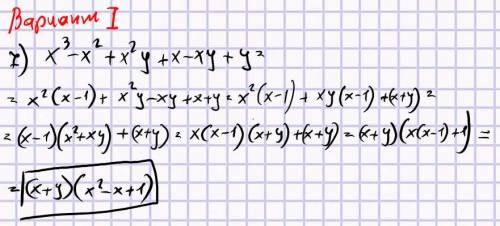 Вариант I
7) x³-x²+x²y+x-xy+y=
= x²(x-1)+x²y-xy+x+y=x²(x-1)+xy(x-1)+(x+y)=
=(x-1)(x²+xy)+(x+y)=x(x-1)(x+y)+(x+y)=(x+y)(x(x-1)+1)=
=(x+y)(x²-x+1)